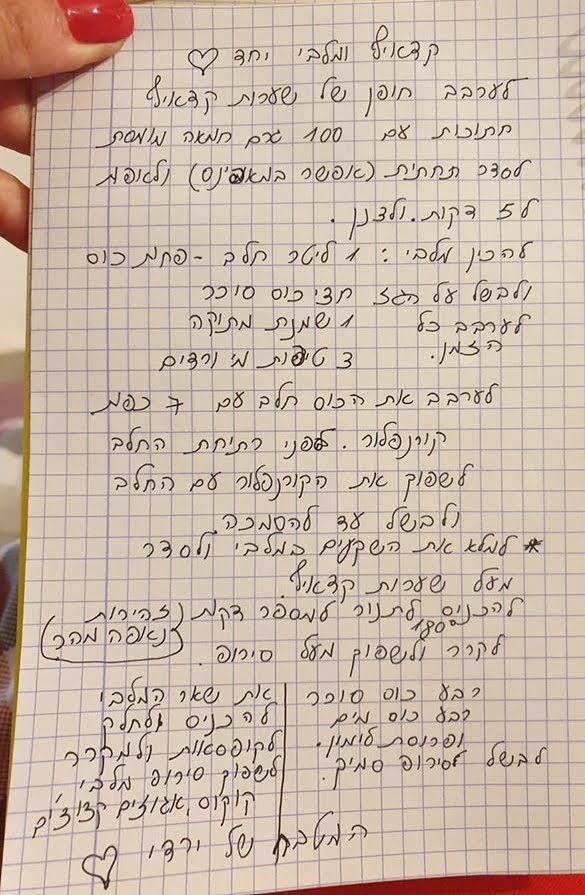 קדאיף ומלבי יחד ♡
לערבב חופן של שערות קדאיף
חתוכות עם 100 גרם חמאה מומסת
לסדר תחתית (אפשר במאפינס) ולאפות
ל 5 דקות. ולצנן.
להכין מלבי: 1 ליטר חלב - פחות כוס
ולבשל על הגז חצי כוס סוכר
לערבב כל 1 שמנת מתיקה
הזמן. 3 טיפות מי ורדים
לערבב את הכוס חלב עם 7 כפות
קורנפלור. לפני רתיחת החלב
לשפוק את הקורנפלור עם החלב
ולבשל עד להסמכה.
* למלא את השקעים במלבי ולסדר
מעל שערות קדאיף.
להכניס לתנור למספר דקות (זהירות
180° נאפה מהר)
לקרר ולשפוק מעל סירופ.
רבע כוס סוכר
רבע כוס מים
ופרוסת לימון.
לבשל לסירופ סמיך.
את שאר המלבי
להכניס
לקופסאות ולמקרר
לשפוק סירופ מלבי,
קוקוס, אגוזים קצוצים
המטבח של ורדי ♡